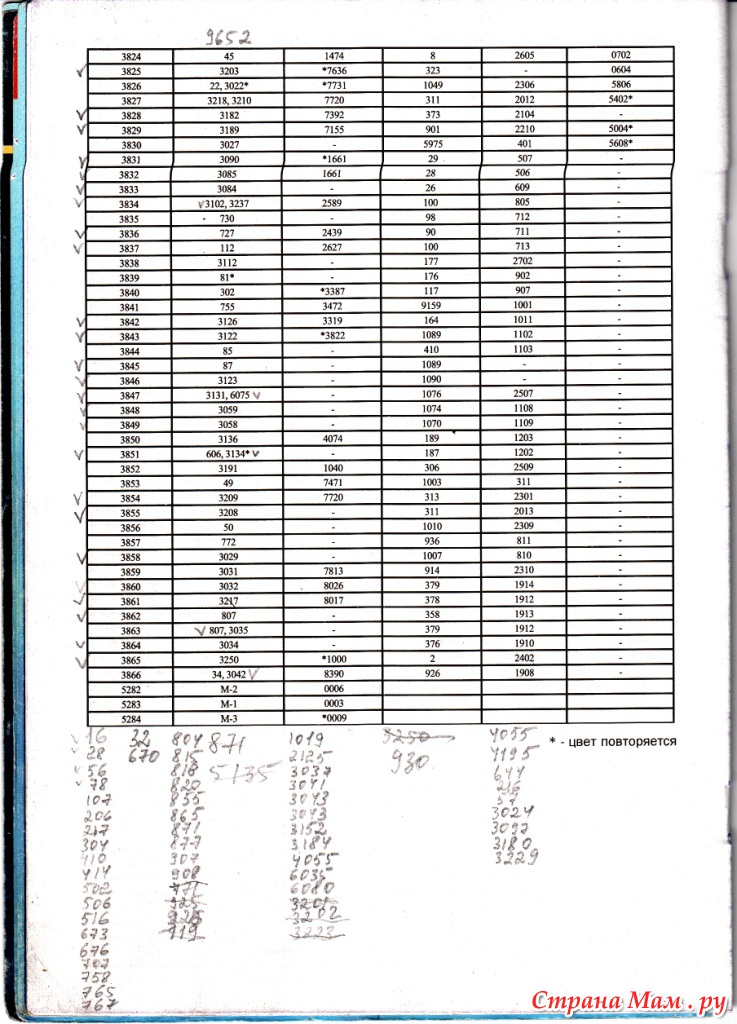 9652
3824 45 1474 8 2605 0702
✓ 3825 3203 *7636 323 - 0604
3826 22, 3022* *7731 1049 2306 5806
3827 3218, 3210 7720 311 2012 5402*
✓ 3828 3182 7392 373 2104 -
✓ 3829 3189 7155 901 2210 5004*
3830 3027 - 5975 401 5608*
✓ 3831 3090 *1661 29 507 -
✓ 3832 3085 1661 28 506 -
✓ 3833 3084 - 26 609 -
✓ 3834 ✓3102, 3237 2589 100 805 -
3835 730 - 98 712 -
✓ 3836 727 2439 90 711 -
✓ 3837 112 2627 100 713 -
3838 3112 - 177 2702 -
3839 81* - 176 902 -
3840 302 *3387 117 907 -
3841 755 3472 9159 1001 -
✓ 3842 3126 3319 164 1011 -
✓ 3843 3122 *3822 1089 1102 -
3844 85 - 410 1103 -
✓ 3845 87 - 1089 - -
✓ 3846 3123 - 1090 - -
✓ 3847 3131, 6075 ✓ - 1076 2507 -
✓ 3848 3059 - 1074 1108 -
✓ 3849 3058 - 1070 1109 -
3850 3136 4074 189 1203 -
✓ 3851 606, 3134* ✓ - 187 1202 -
3852 3191 1040 306 2509 -
3853 49 7471 1003 311 -
✓ 3854 3209 7720 313 2301 -
✓ 3855 3208 - 311 2013 -
3856 50 - 1010 2309 -
3857 772 - 936 811 -
✓ 3858 3029 - 1007 810 -
3859 3031 7813 914 2310 -
✓ 3860 3032 8026 379 1914 -
✓ 3861 3217 8017 378 1912 -
✓ 3862 807 - 358 1913 -
3863 ✓ 807, 3035 - 379 1912 -
✓ 3864 3034 - 376 1910 -
✓ 3865 3250 *1000 2 2402 -
3866 34, 3042 ✓ 8390 926 1908 -
5282 М-2 0006
5283 М-1 0003
5284 М-3 *0009
* - цвет повторяется
✓ 16 32 804 871 1019 3250 4055
✓ 28 670 815 5135 2125 930 4195
✓ 56 818 3037 644
✓ 78 820 3041 216
107 855 3043 37
206 865 3043 3024
217 871 3152 3092
304 877 3184 3180
410 907 4055 3229
414 908 6035
502 771 6080
506 925 3201
516 925 3202
673 119 3223
676
707
758
765
767
Страна Мам . ру